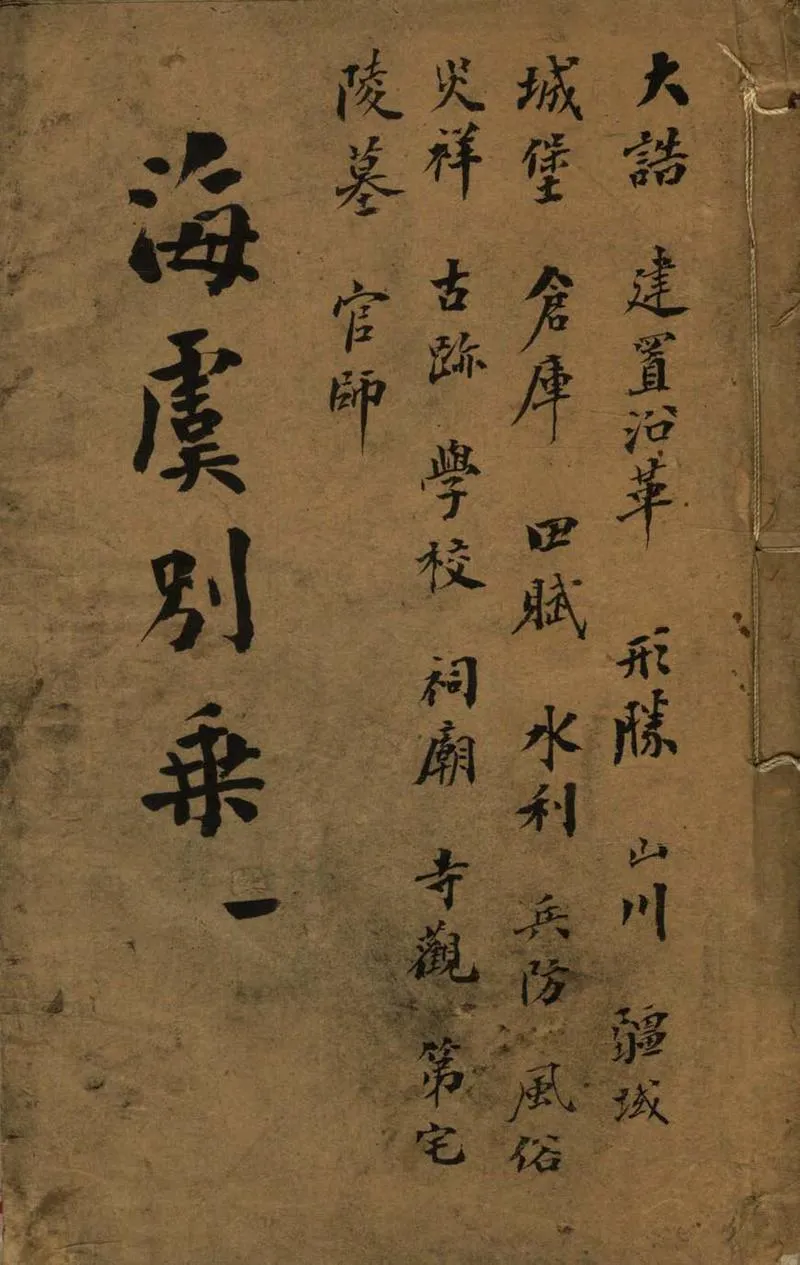 大誥 建置沿革 形勝 山川 疆域
城堡 倉庫 田賦 水利 兵防 風俗
災祥 古跡 學校 祠廟 寺觀 第宅
陵墓 官師
海虞別乗 一